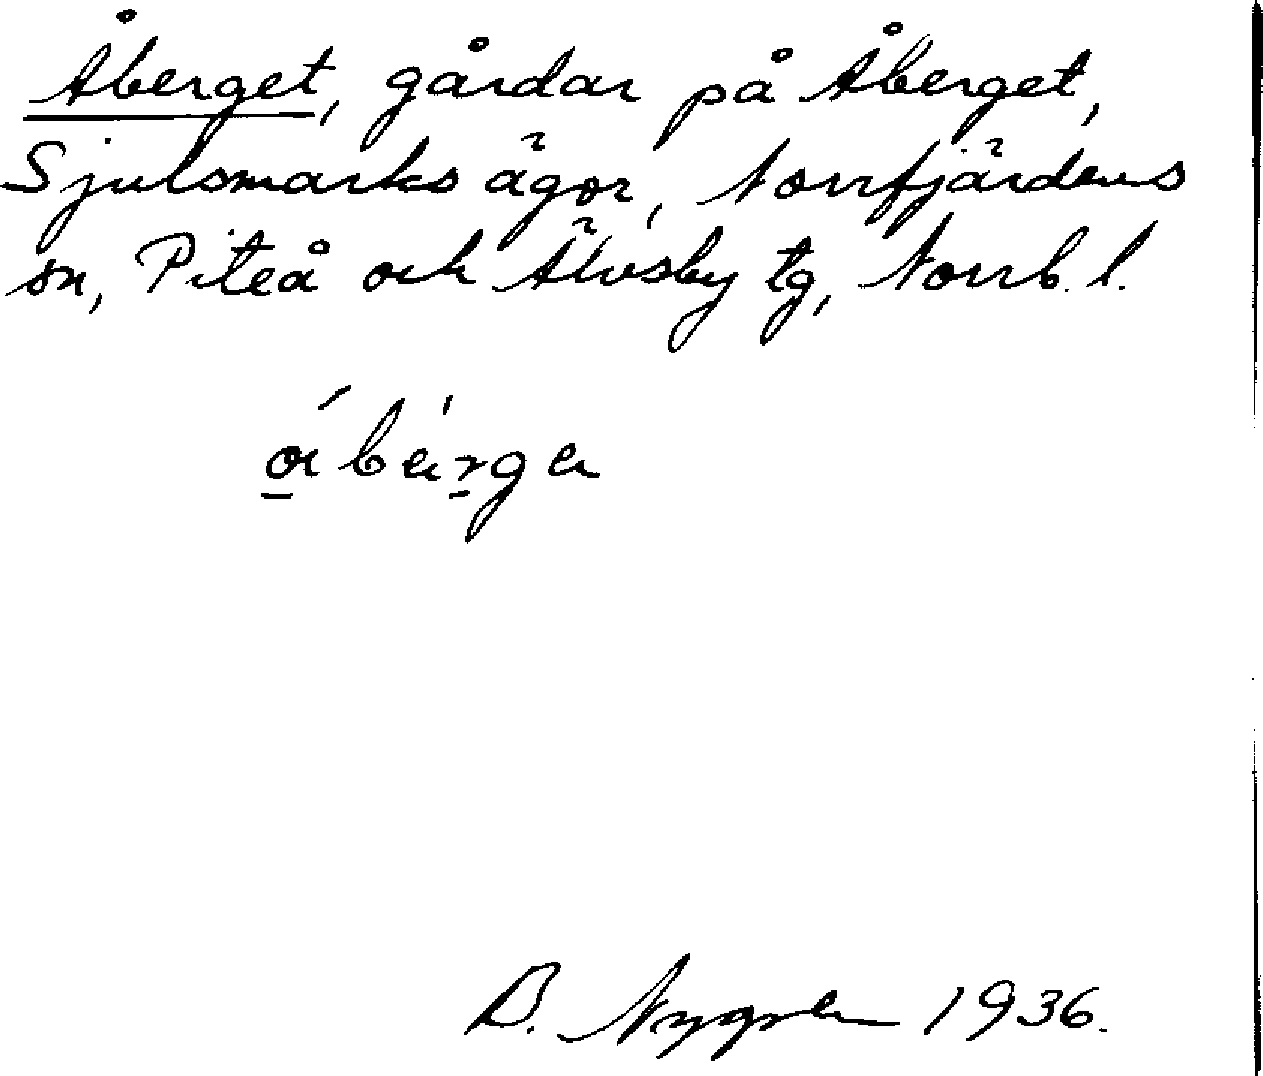 Åberget, gårdar på Åberget,
Sjulsmarks ägor, Norrfjärdens
sn, Piteå och Älvsby tg, Norrb. l.
B. Nygren 1936.